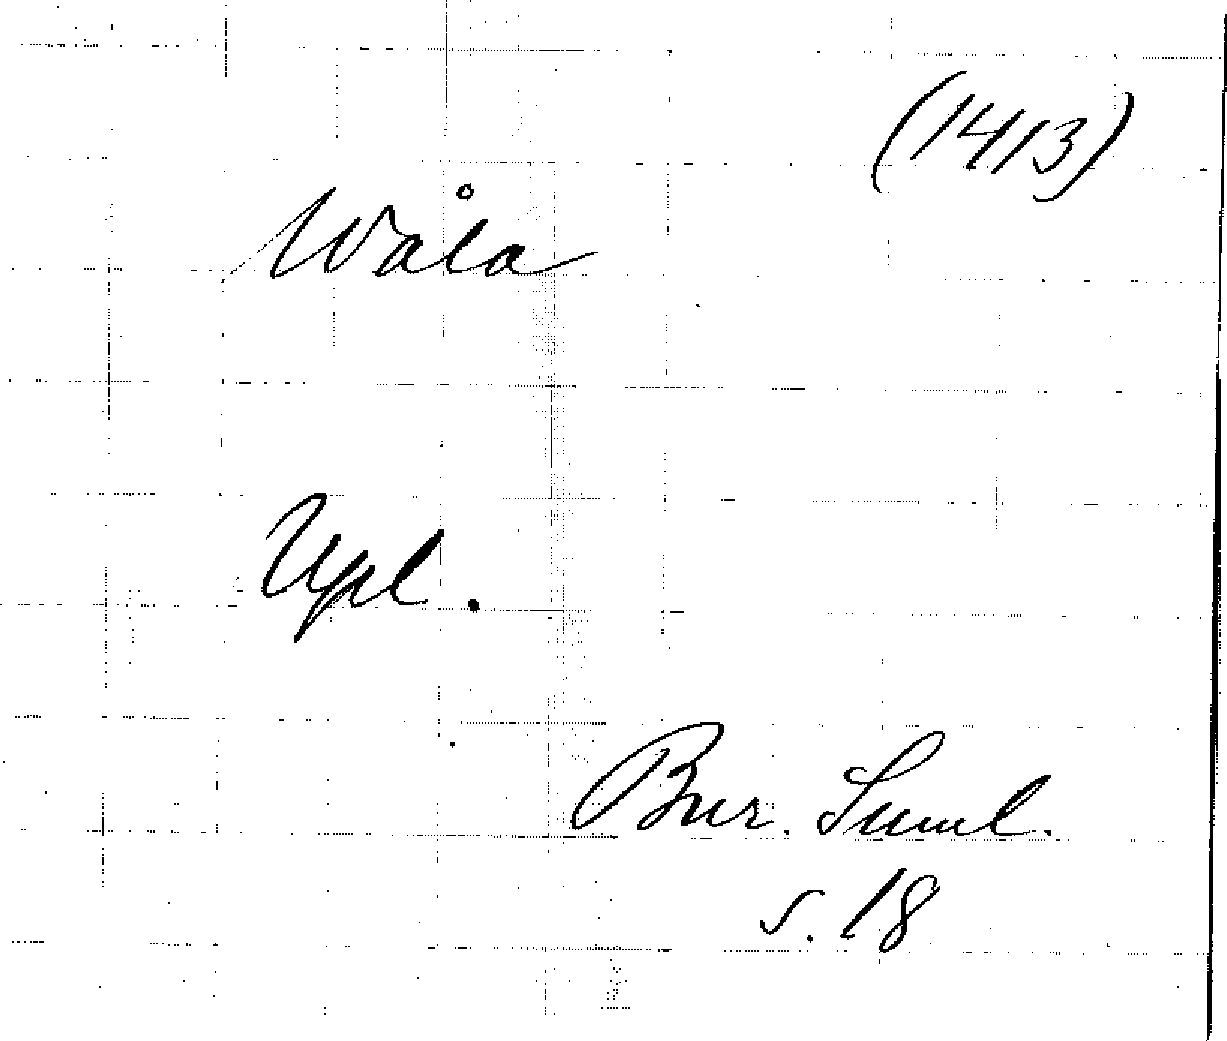 (1413)
Wåla
Upl.
Bur. Saml.
s. 18